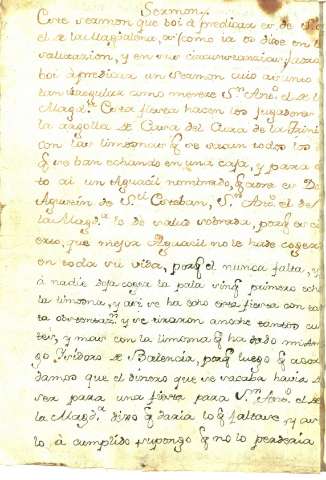 Sermon
Este sermon que boi à predicar es de Sn
el de la Magdalena, asi como ia os dixe en
salutazion, y en sus circunstancias, aora
boi à predicar un sermon cuio asunto
tan irregular como merece Sn Anto. el de la
Magda. Esta fiesta hacen los jugadores
la argolla de Casa del Cura de la Trini
con las limosnas q se sacan todos los
q se ban echando en una caja, y para
to ai un Aguacil nombrado, q aora es Dn
Agustin de Sn Esteban, Sn Anto. el de
la Magda. le de salud sobrada, porq es co
erto, que mejor Aguacil no le hade coger
en toda su vida, porq el nunca falta, y
à nadie deja coger la pala sin q primero eche
la limosna, y asi se ha echo esta fiesta con tan
ta obstentazn. y se tiraron anoche tantos cue
tes, y mas con la limosna q ha dado mi Ami
go Isidoro de Balencia, porq luego q acor
damos que el dinero que se sacaba havia de
ser para una fiesta para Sn Anto. el de
la Magda. dixo q daria lo q faltase, y asi
lo à cumplido supongo q no lo perderia